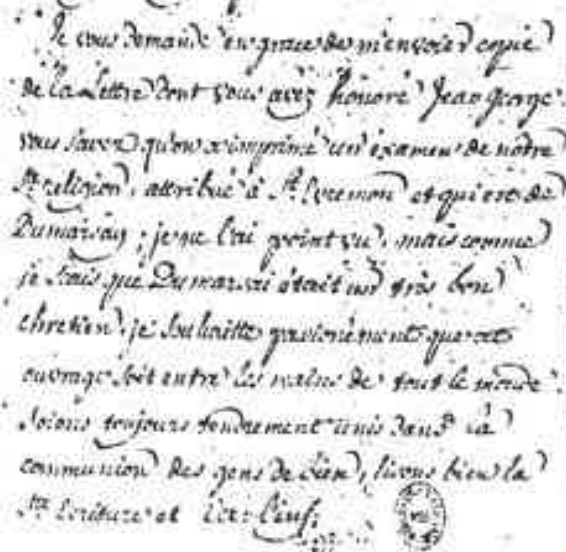 Je vous demande en grace de m'envoier copie
de la Lettre dont vous avez honoré Jean George.
vous savez qu'on a imprimé un examen de nôtre
Ste religion, attribué à St. Evremon et qui est de
Dumarsay; je ne l'ai point vu, mais comme
je sais que Dumarsai était un très bon
chretien, je souhaitte passionément que cet
ouvrage soit entre les mains de tout le monde.
Soions toujours tendrement unis dans la
communion des gens de bien, lisons bien la
Ste Ecriture et